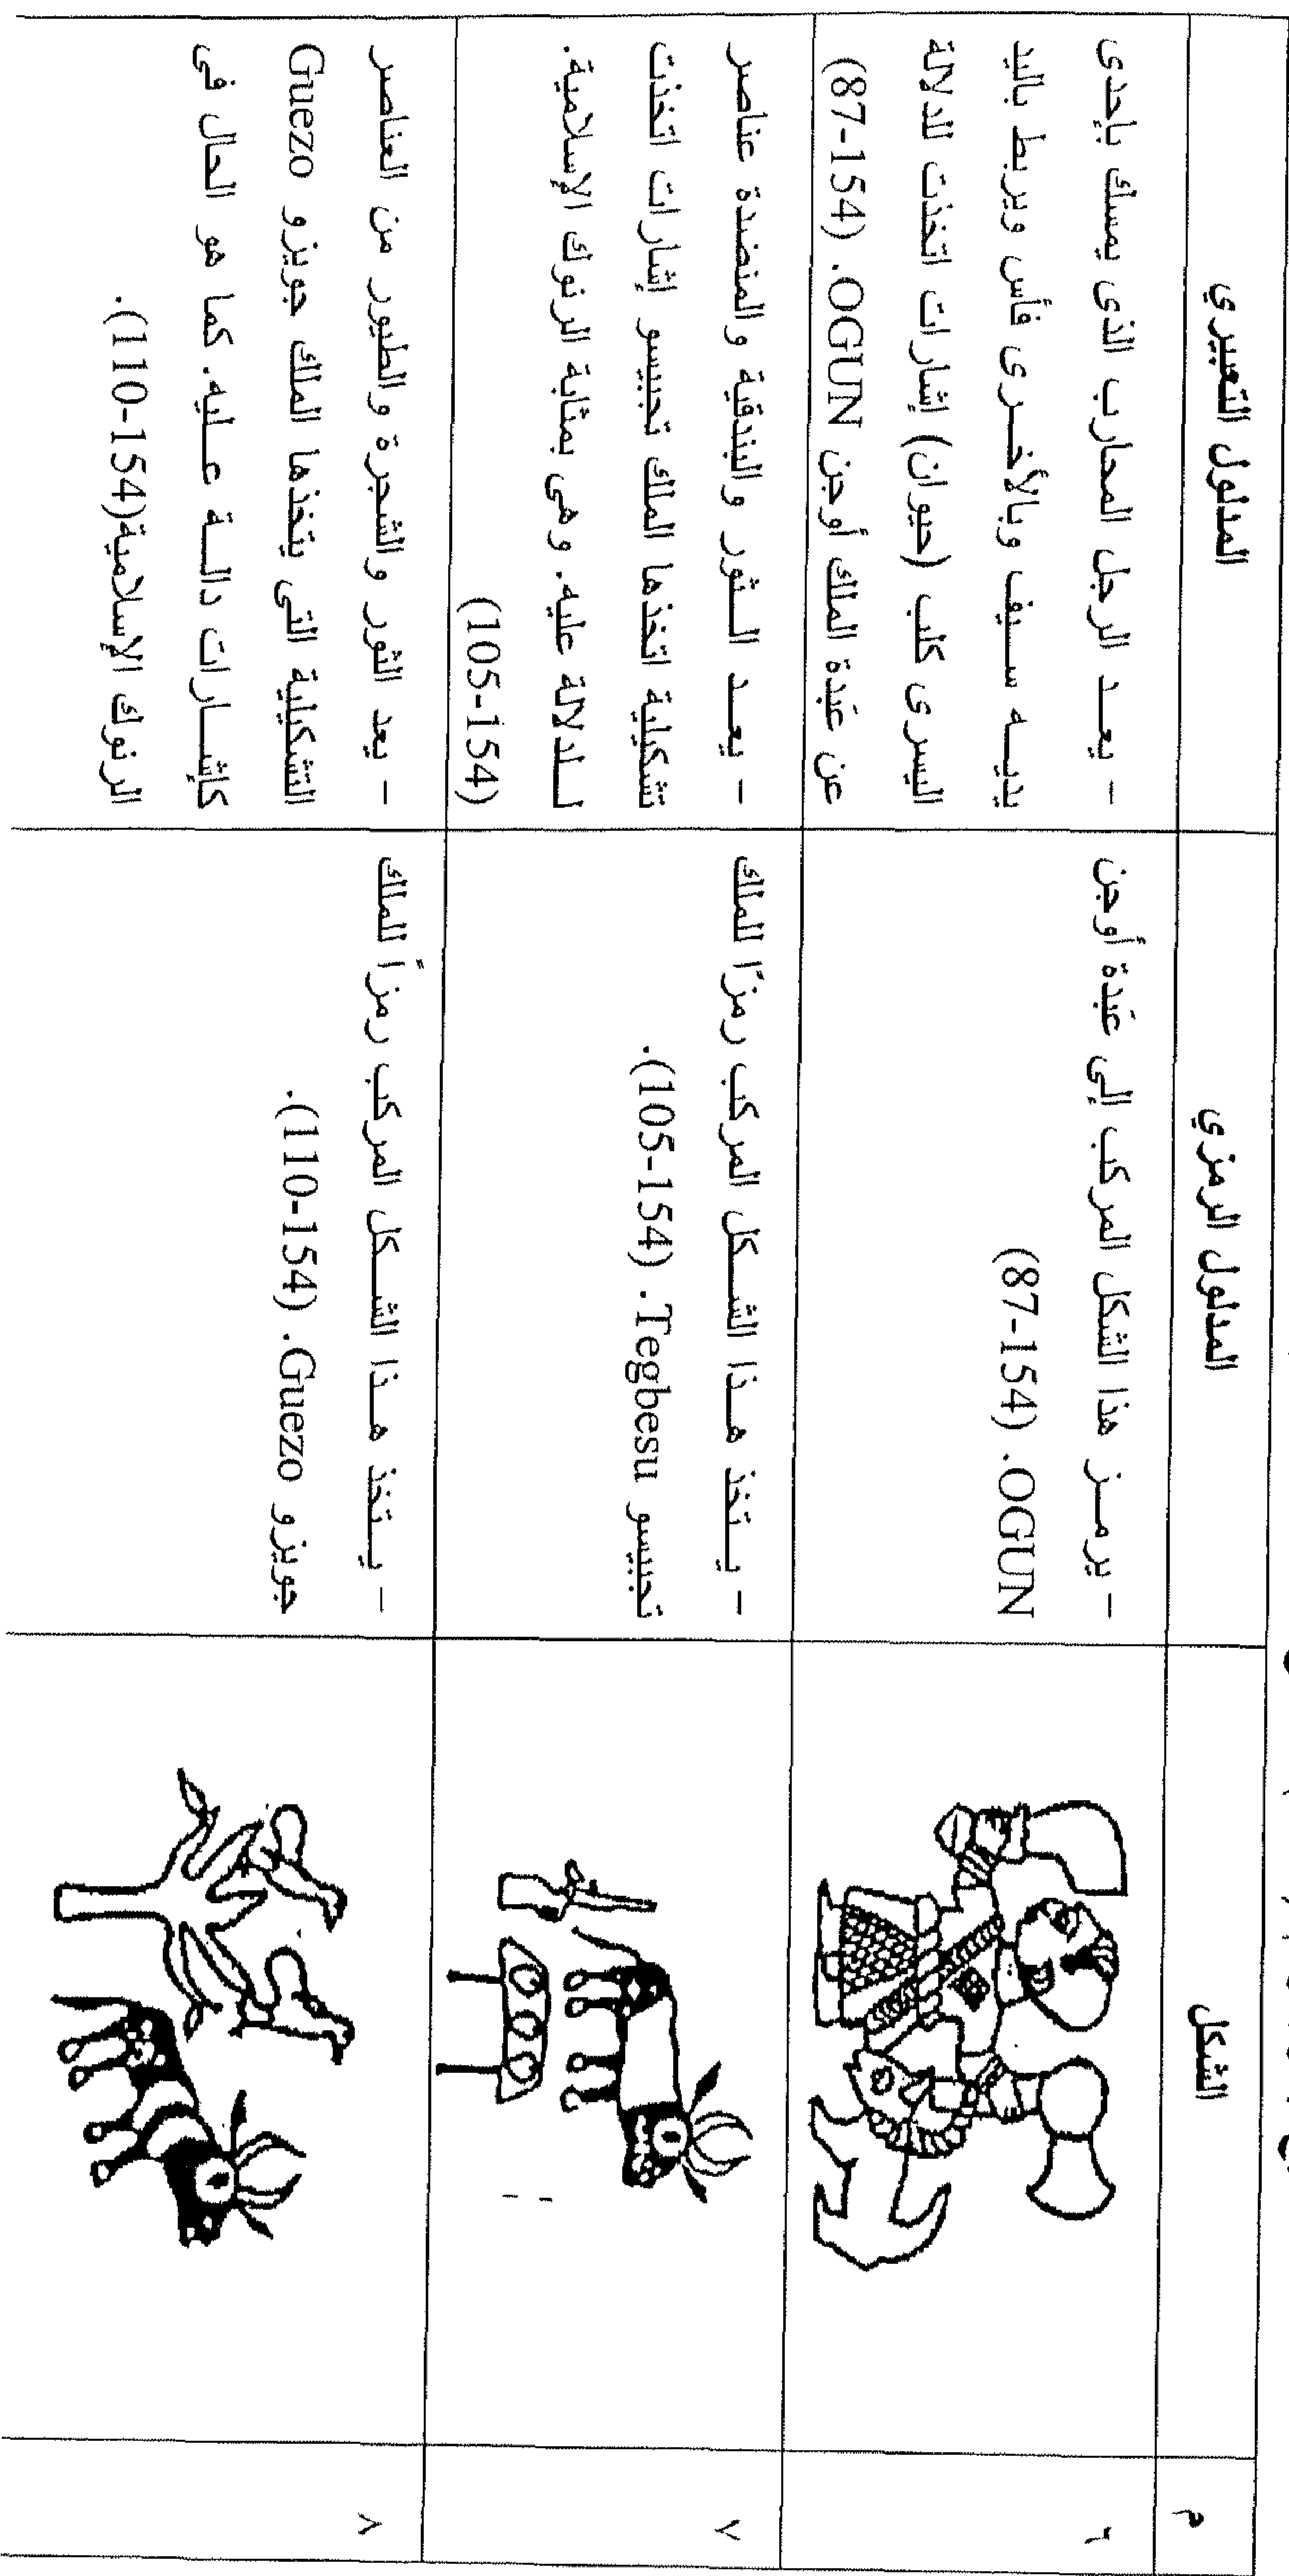 م
الشكل
المدلول الرمزي
المدلول التعبيري
٦
– يرمـــز هذا الشكل المركب إلى عَبَدة أوجن
OGUN. (87-154)
– يعـــد الرجل المحارب الذى يمسك بإحدى
يديـــه ســـيف وبالأخـــرى فأس ويربط باليد
اليسرى كلب (حيوان) إشارات اتخذت للدلالة
عن عَبَدة الملك أوجن OGUN. (87-154)
٧
– يـــتخذ هـــذا الشـــكل المركب رمزًا للملك
تجبيسو Tegbesu. (105-154).
– يعـــد الـــثور والبندقية والمنضدة عناصر
تشكيلية اتخذها الملك تجبيسو إشارات اتخذت
لـــلدلالة عليه. وهى بمثابة الرنوك الإسلامية.
(105-154)
٨
– يـــتخذ هـــذا الشـــكل المركب رمزاً للملك
جويزو Guezo. (110-154).
– يعد الثور والشجرة والطيور من العناصر
التشكيلية التى يتخذها الملك جويزو Guezo
كإشـــارات دالـــة عـــليه. كما هو الحال فى
الرنوك الإسلامية(110-154).